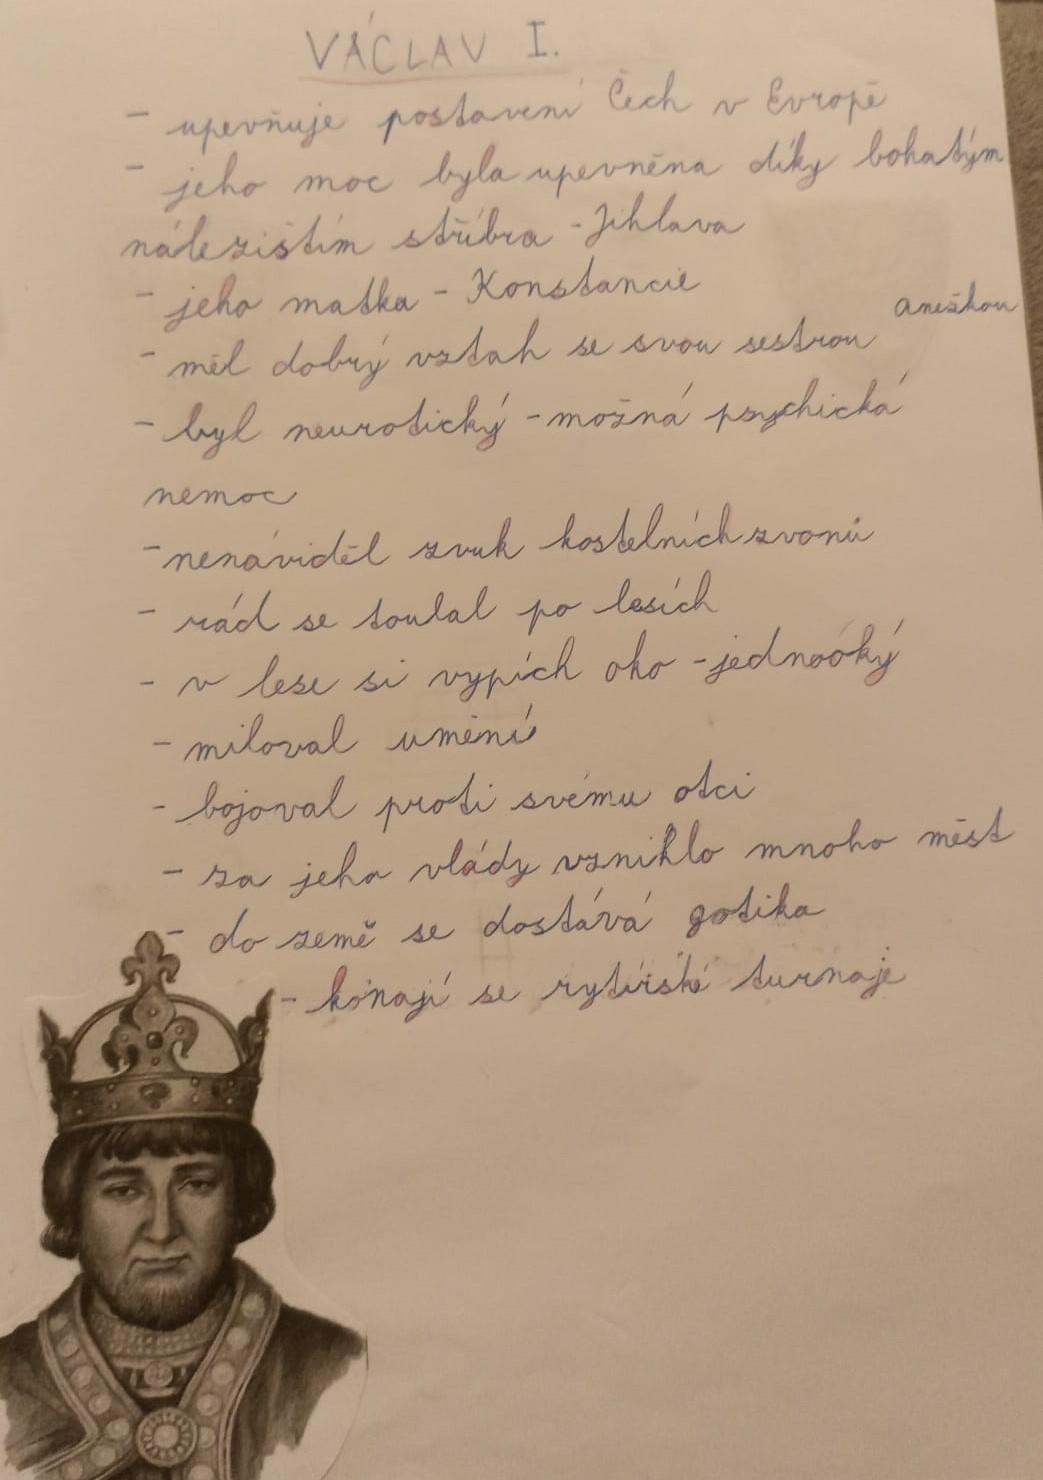 VÁCLAV I.
- upevňuje postavení Čech v Evropě
- jeho moc byla upevněna díky bohatým
nálezištím stříbra - Jihlava
- jeho matka - Konstancie
- měl dobrý vztah se svou sestrou Anežkou
- byl neurotický - možná psychická
nemoc
- nenáviděl zvuk kostelních zvonů
- rád se toulal po lesích
- v lese si vypích oko - jednooký
- miloval umění
- bojoval proti svému otci
- za jeho vlády vzniklo mnoho měst
- do země se dostává gotika
- konají se rytířské turnaje